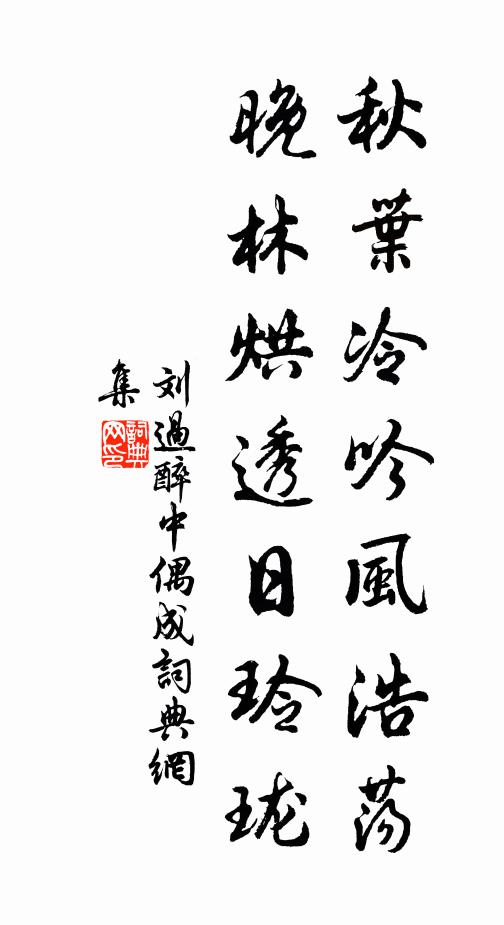 秋葉冷吟風浩蕩
晚林烘透日玲珑
刘過醉中偶成詞典網
集
詞典
网印